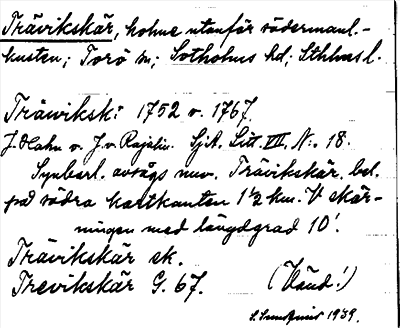 Trävikskär, holme utanför södermanl.-
kusten; Torö sn; Sotholms hd; Sthlms l.
Träwiksk: 1752 o. 1767.
J. Hahn o. J. v. Rajalin. Sjök. Litt. VII. N:o 18.
Synbarl. avsågs nuv. Trävikskär, bel.
på södra kartkanten 1½ km. V skär-
ningen med längdgrad 10'.
Trävikskär sk.
Trevikskär G. 67. (Vänd!)
1939.